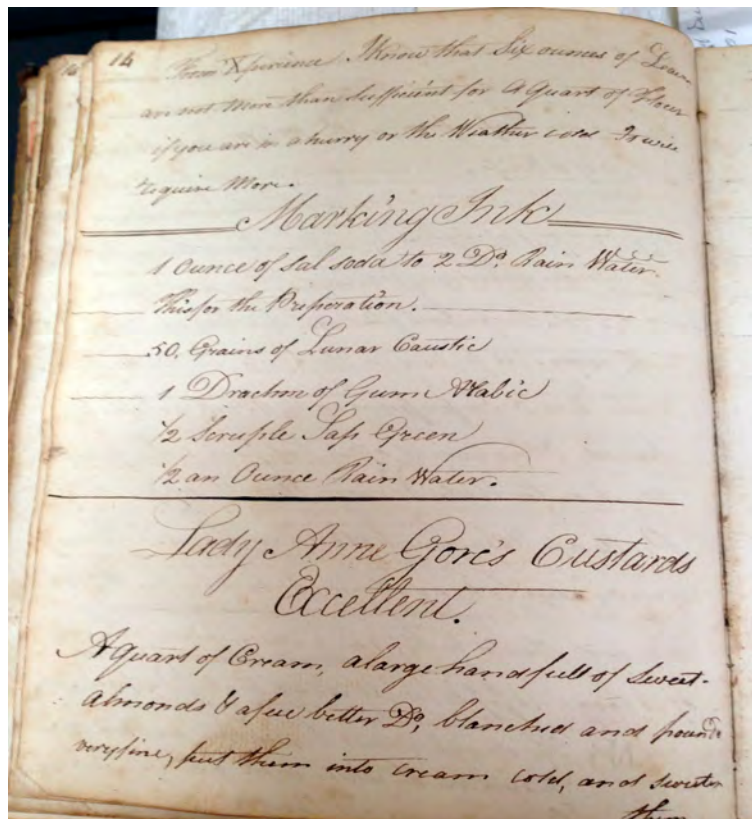 14
From Xperience I Know that Six ounces of
are not More than Sufficient for A Quart of Flour
if you are in a hurry or the Weather cold It will
require More.
Marking Ink
1 Ounce of Sal Soda to 2 Do. Rain Water.
This for the Preperation.
50, Grains of Lunar Caustic
1 Drachm of Gum Arabic
1/2 Scruple Sap Green
1/2 an Ounce Rain Water.
Lady Anne Gore's Custards
Excellent.
A quart of Cream, a large handfull of Sweet-
almonds & a few bitter Do, blanched and pound'd
very fine, put them into cream cold, and sweeten
them